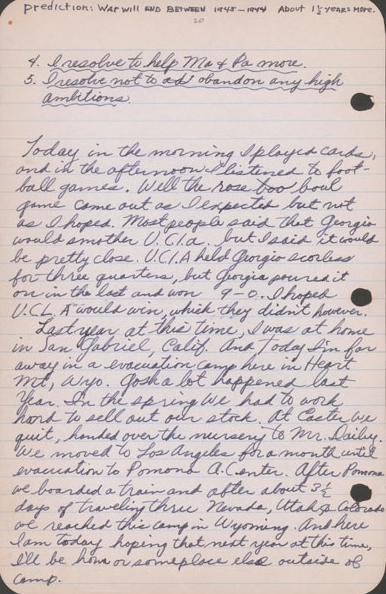 prediction: WAR WILL END BETWEEN 1943-1944 ABOUT 1½ YEARS MORE.
20
4. I resolve to help Ma & Pa more.
5. I resolve not to ad abandon any high
ambitions.
Today in the morning I played cards,
and in the afternoon I listened to foot-
ball games. Well the rose boo boul
game came out as I expected but not
as I hoped. Most people said that Georgia
would smother U.C.l.a. but I said it would
be pretty close. U.C.l.A held Georgia scorless
for three quarters, but Georgia poured it
on in the last and won 9-0. I hoped
U.C.L.A would win, which they didn't however.
Last year at this time, I was at home
in San Gabriel, Calif. And today I'm far
away in a evacuation camp here in Heart
Mt, Wyo. Gosh a lot happened last
Year. In the spring we had to work
hard to sell out our stock. At Easter we
quit, handed over the nursery to Mr. Dailey.
We moved to Los Angeles for a month until
evacuation to Pomona A. Center. After Pomona
we boarded a train and after about 3½
days of traveling three Nevada, Utah, & Colorado
we reached this camp in Wyoming. And here
I am today hoping that next year at this time,
I'll be home or someplace else outside of
camp.